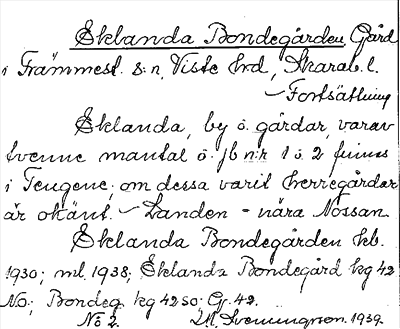 Eklanda Bondegården Gård
i Främmest. s:n, Viste hrd, Skarab. l.
— Fortsättning
Eklanda, by o. gårdar, varav
tvenne mantal o. jb n:r 1 o. 2 finnes
i Tengene; om dessa varit herregårdar
är okänt. — Landen - nära Nossan.
Eklanda Bondegården kb.
1930; ml. 1938; Eklanda Bondegård kg 42
NO; Bondeg. kg 42 SO; G. 42.
No 2. M. Svenungson. 1939.